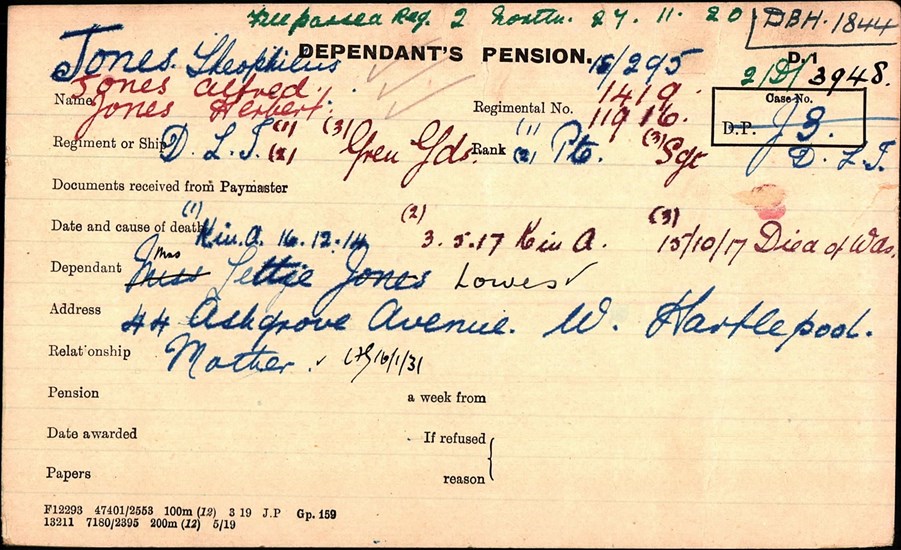 File passed Reg. 2 North. 27.11.20 DBH. 1844
Jones. Theophilus DEPENDANT'S PENSION. 18/295 D.1
Jones Alfred. 1419. 2/D/3948.
Name Jones Herbert Regimental No. 11916. Case No.
D.P. J 3.
Regiment or Ship D. L. I. (1) (2) (3) Gren Gds. Rank (1) (2) Pte. (3) Sgt D. L. I.
Documents received from Paymaster
Date and cause of death (1) K in A. 16.12.14 (2) 3.5.17 K in A. (3) 15/10/17 Died of Wds.
Dependant Miss Mrs Lettie Jones Lowes
Address 44 Ashgrove Avenue. W. Hartlepool.
Relationship Mother. 16/1/31
Pension a week from
Date awarded If refused
Papers reason
F12293 47401/2553 100m (12) 3 19 J.P Gp. 159
13211 7180/2395 200m (12) 5/19